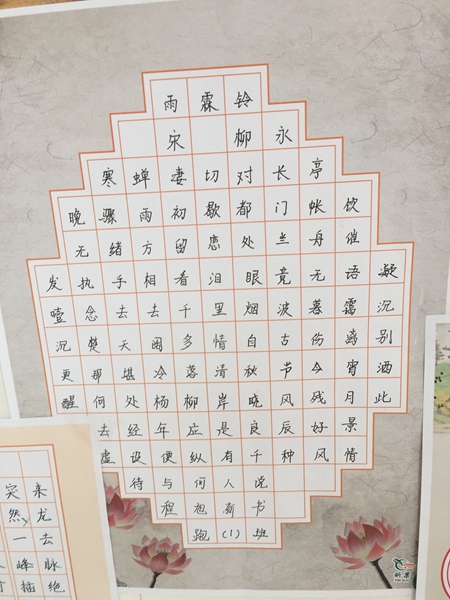 雨霖铃
宋 柳永
寒蝉凄切对长亭
晚骤雨初歇都门帐饮
无绪方留恋处兰舟催
发执手相看泪眼竟无语凝
噎念去去千里烟波暮霭沉
沉楚天阔多情自古伤离别
更那堪冷落清秋节今宵酒
醒何处杨柳岸晓风残月此
去经年应是良辰好景
虚设便纵有千种风情
待与何人说
程旭新书
跑(1)班
来
然龙
一去
峰脉
插绝